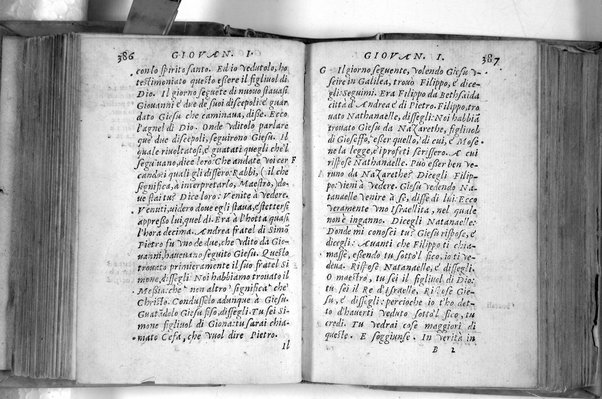 386
GIOVAN. I.
con lo spirito santo. Ed io vedutolo, ho
testimoniato questo essere il figliuol di
Dio. Il giorno seguẽte di nuovo stavasi
Giovanni è due de suoi discepoli: è guar
dato Giesu che caminava, disse. Ecco
l'agnel di Dio. Onde vditolo parlare
que due discepoli, seguirono Giesu. Il
quale rivoltatosi, è guatati quegli che'l
seguivano, dice loro: Che andate voi cer F
cando: i quali gli dissero: Rabbi, (il che
significa, a interpretarlo, Maestro,) do
ve stai tu? Dice loro: Venite à vedere.
Venuti, videro dove egli stava, è stettersi
appresso lui, quel di. Era à l'hotta quasi
l'hora decima. Andrea fratel di Simõ
Pietro fu vno de due, che vdito da Gio-
vanni, havevano seguito Giesu. Questo
trovato primieramente il suo fratel Si
mone, dissegli: Noi habbiamo trovato il
Messia: che non altro significa che
Christo. Condusselo adunque à Giesu.
Guatãdolo Giesu fiso, dissegli: Tu sei Si
mone figliuol di Giona: tu sarai chia-
mato Cefa, che vuol dire Pietro.
Il
GIOVAN. I.
387
G Il giorno seguente, volendo Giesu v-
scire in Galilea, trovò Filippo, è dice-
gli: Seguimi. Era Filippo da Bethsaida
città d'Andrea è di Pietro. Filippo, tro
vato Nathanaelle, dissegli: Noi habbiã
trovato Giesu da Nazarethe, figliuol
di Gioseffo, esser quello, di cui, è Mose
ne la legge, è i profeti scrissero. A cui
rispose Nathanaelle. Può esser ben ve
runo da Nazarethe? Dicegli Filip-
po: Vieni à vedere. Giesu vedendo Na-
tanaelle venire à se, disse di lui: Ecco
veramente vno Israellita, nel quale
non è inganno. Dicegli Natanaelle:
Donde mi conosci tu? Giesu rispose, è
dicegli: Avanti che Filippo ti chia-
masse, essendo tu sotto'l fico, io ti ve-
deva. Rispose Natanaello, è dissegli.
O maestro, tu sei il figliuol di Dio:
tu sei il Re d'Israelle. Rispose Gie-
su, è dissegli: percioche io t'ho det-
to d'haverti veduto sotto'l fico, tu
credi. Tu vedrai cose maggiori di
queste. E soggiunse. In verità in